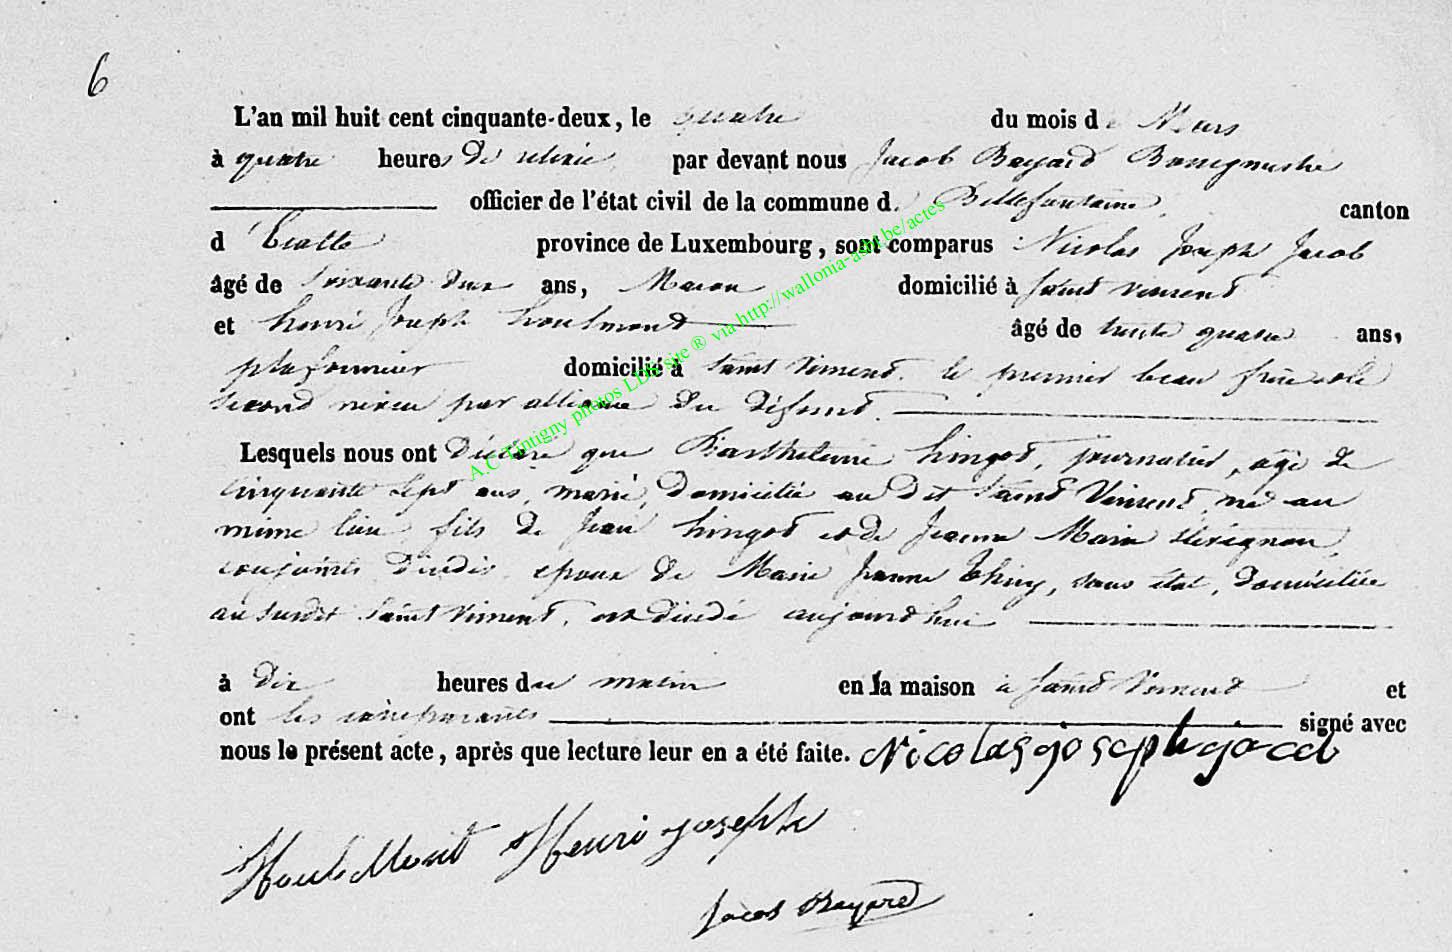 6
L'an mil huit cent cinquante-deux, le quatre du mois de Mars
à quatre heures de relevée par devant nous Jacob Bayard Bourgmestre
officier de l'état civil de la commune d. Bellefontaine, canton
d' Etalle province de Luxembourg, sont comparus Nicolas Joseph Jacob
âgé de soixante deux ans, Macon domicilié à Saint Vincent
et henri Joseph houlmont âgé de trente quatre ans,
plafonnier domicilié à Saint Vincent. le premier beau frère et le
second neveu par alliance du défunt.
Lesquels nous ont déclaré que Barthelemie hingot, journalier, agé de
cinquante sept ans, marié, domicilié au dit Saint Vincent, né au
même lieu, fils de Jean hingot et de Jeanne Marie
conjoints décédés, epoux de Marie Jeanne Thiry, sans état, domiciliée
au susdit Saint Vincent, est décédé aujourd'hui
à dix heures du matin en sa maison à Saint Vincent et
ont les comparants signé avec
nous le présent acte, après que lecture leur en a été faite. Nicolas joseph jacob
HouleMont Henri joseph
Jacob Bayard
A.C Tintigny photos LDS site ® via http://wallonia-asbl.be/actes